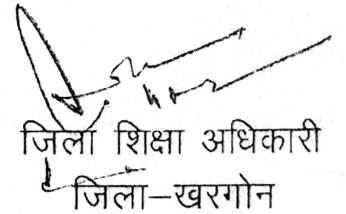 जिला शिक्षा अधिकारी
जिला-खरगोन